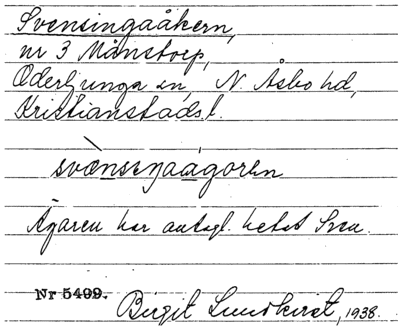 Svensingaåkern,
nr 3 Månstorp,
Oderljunga sn, N. Åsbo hd,
Kristianstads l.
svænseŋaågoren
Ägaren har antagl. hetat Sven.
Nr 5499.
Birgit Lundkvist, 1938.